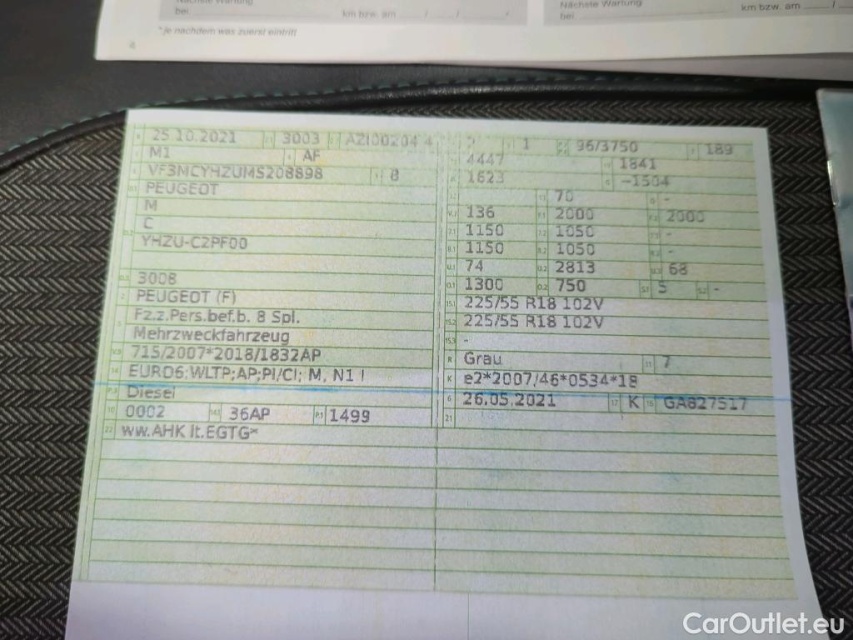 Nächste Wartung
bei km bzw. am / /
Nächste Wartung
bei km bzw. am /
*je nachdem was zuerst eintritt
4
25.10.2021 3003 AZI00204 4
M1 AF
VF3MCYHZUMS208898 8
PEUGEOT
M
C
YHZU-C2PF00
3008
PEUGEOT (F)
Fz.z.Pers.bef.b. 8 Spl.
Mehrzweckfahrzeug
715/2007*2018/1832AP
EURO6;WLTP;AP;PI/CI; M, N1 I
Diesel
0002 36AP 1499
ww.AHK lt.EGTG*
1 96/3750 189
4447 1841
1623 -1504
70 -
136 2000 2000
1150 1050 -
1150 1050 -
74 2813 68
1300 750 5 -
225/55 R18 102V
225/55 R18 102V
-
Grau 7
e2*2007/46*0534*18
26.05.2021 K GA827517
CarOutlet.eu